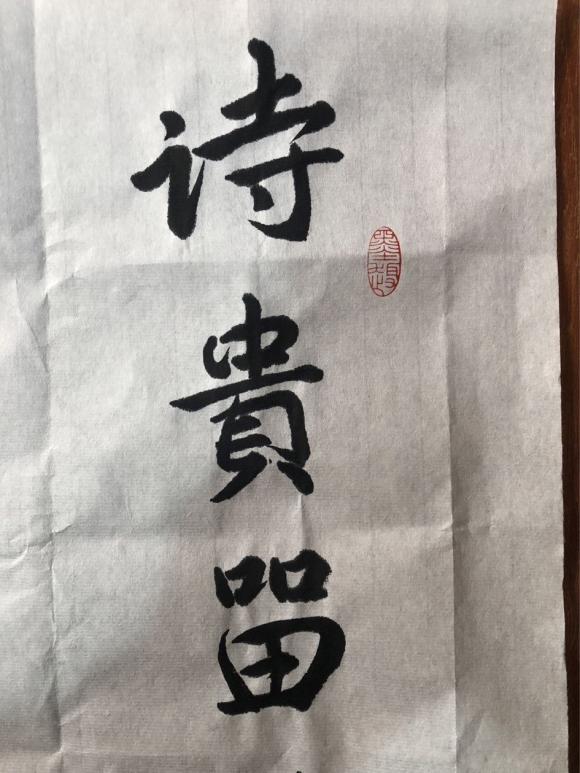 诗貴留